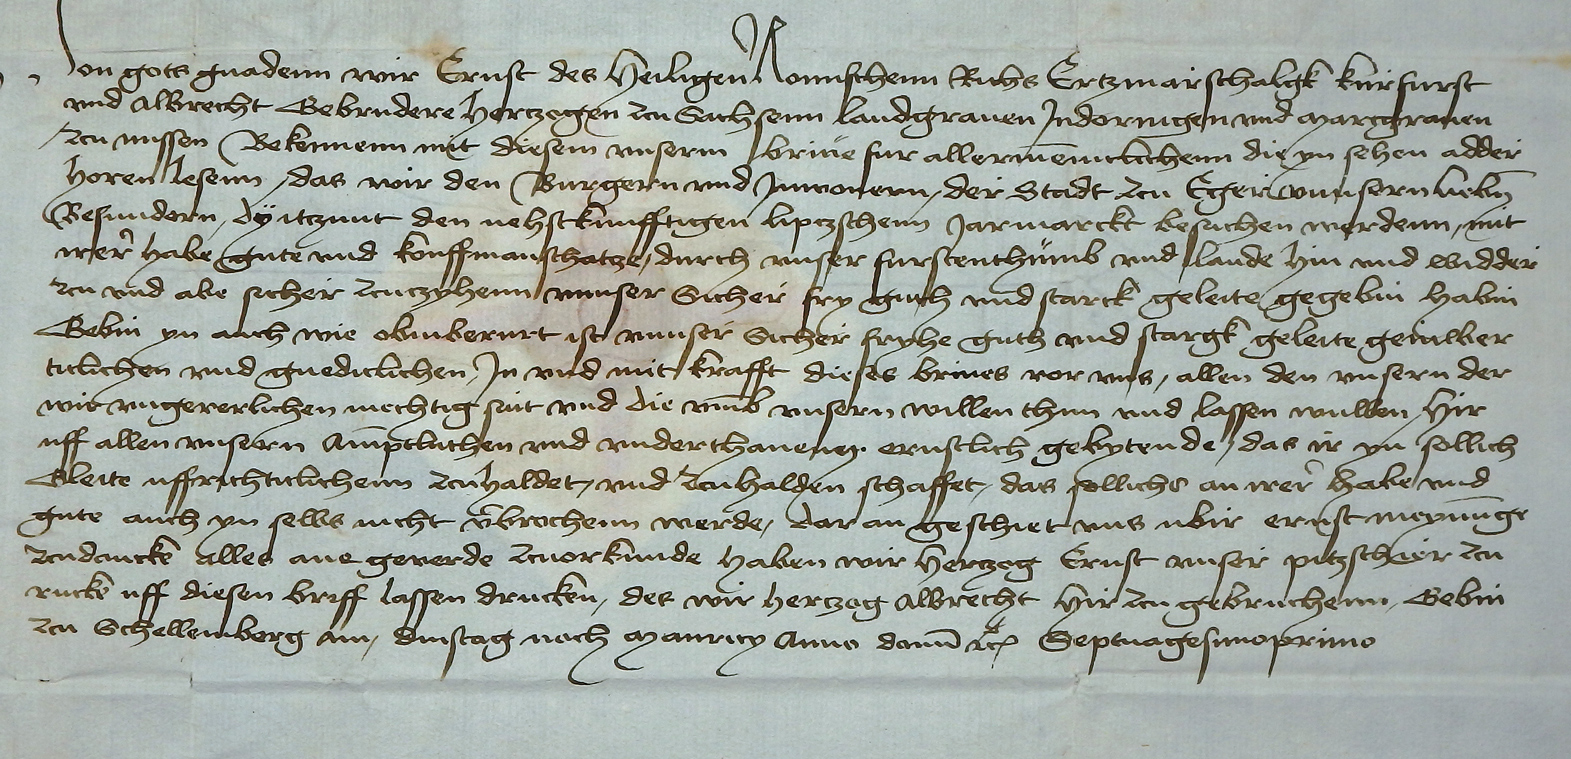 Von gots gnadenn wir Ernst des Heiligen Romischenn Richs Ertzmarschalgk kurfurst
vnd Albrecht Gebrudere Hertzogen zcu Sachsenn landgrauen Jndoringen vnd Marcgrauen
zcu missen Bekennenn mit diesem vnserm briue fur allermeniclichenn die yn sehen adder
horen lesenn, das wir den Burgern vnd Jnwonern, der Stadt zcu Eger vnnsern liebin
Besundern, dy itzunt den nehstkunfftigen liptzschenn Jarmarckt besuchen werdenn, mit
irer habe gute vnd kouffmanschatze, durch vnser furstenthumb vnd lande hin vnd widder
zcu vnd abe sicher zcuczyhenn vnnser Sicher fry guth vnd starck geleite gegebin habin
Gebin yn auch wie obinberurt ist vnnser Sicher fryhe guth vnd stargk geleite geinwer
ticlichen vnd gnediclichen, Jn vnd mit krafft dieses briues vor vns, allen den vnsern der
wir vngeuerlichen mechtig sint vnd die vmb vnsern willen thun vnd lassen wullen Hir
uff allen vnsern Amptluthen vnd vnderthanen ernstlich gebytende, das ir yn sollich
Gleite uffrichticlichenn zcuhaldet, vnd zcuhalden schaffet, das sollichs an irer habe vnd
gute auch yn selbs nicht vbrochenn werde, dar an geschiet vns ubir ernst meynunge
zcudancke alles ane geuerde zcuorkunde haben wir Hertzog Ernst vnser pitzschir zcu
rucke uff diesen briff lassen drucken, des wir hertzog Albrecht hir zcu gebruchenn, Gebin
zcu Schellemberg am, dinstag nach Mauricy Anno domi Septuagesimoprimo